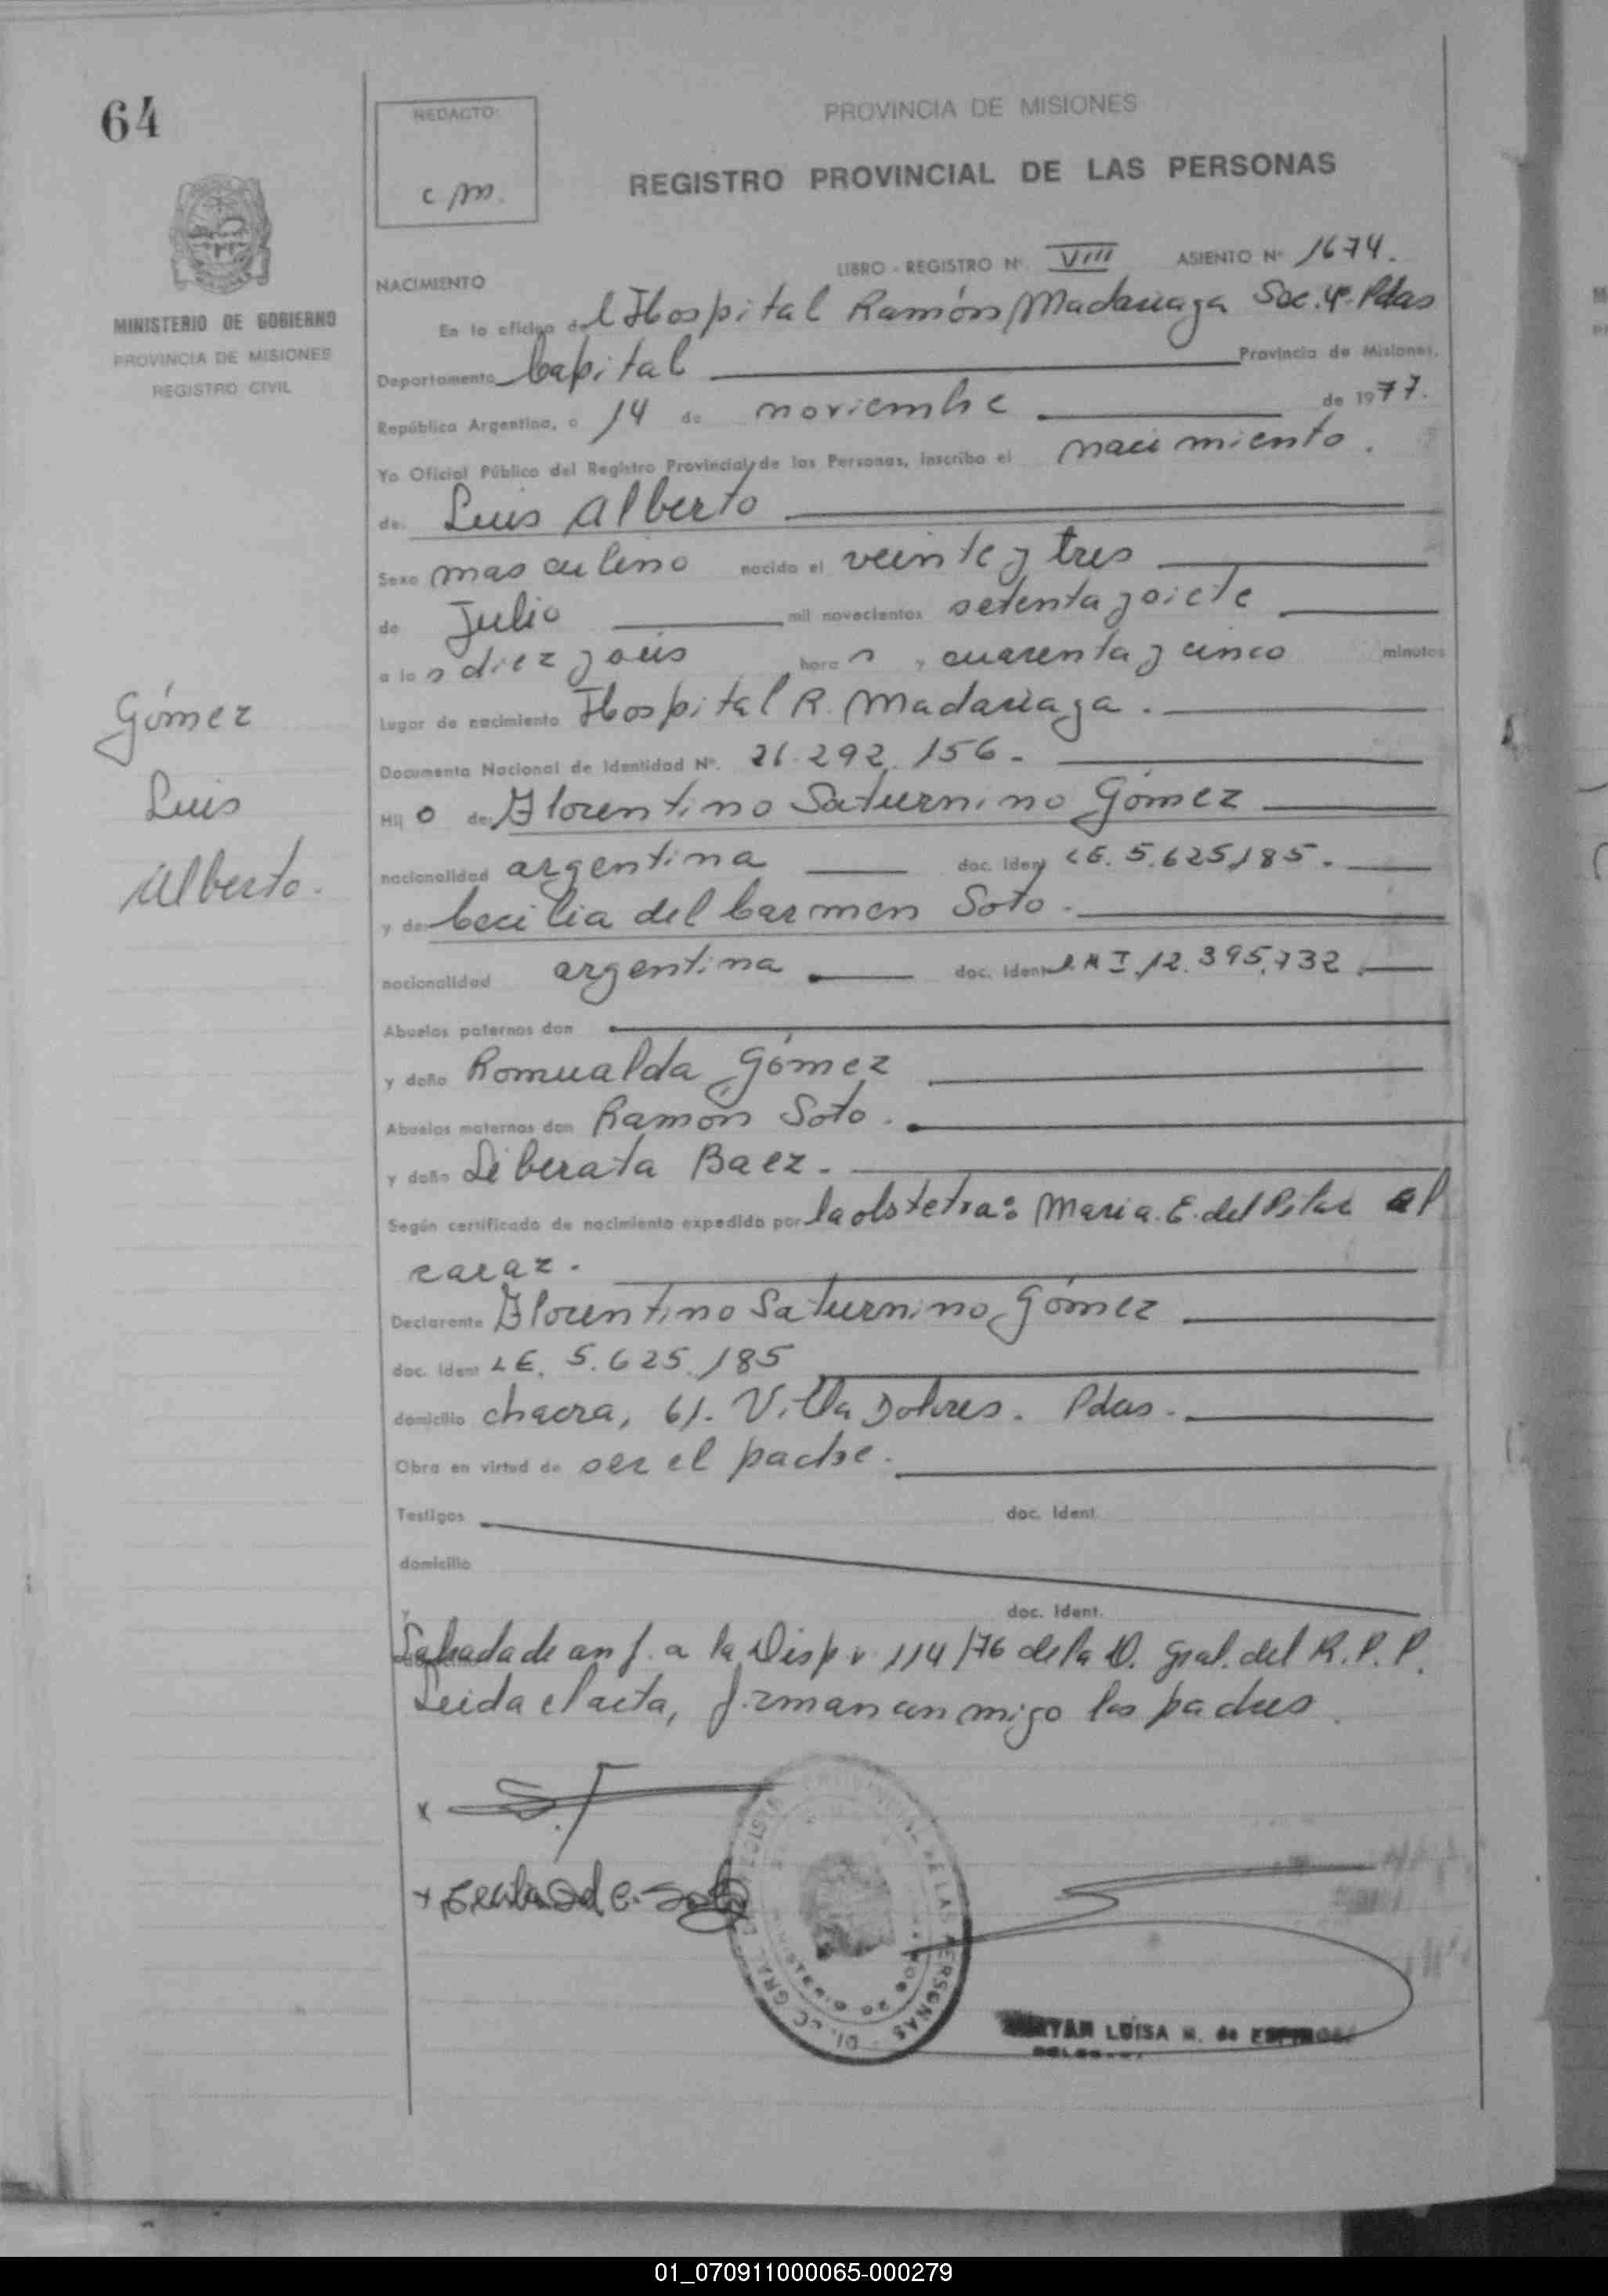 64
REDACTO:
c m.
PROVINCIA DE MISIONES
REGISTRO PROVINCIAL DE LAS PERSONAS
MINISTERIO DE GOBIERNO
PROVINCIA DE MISIONES
REGISTRO CIVIL
LIBRO - REGISTRO Nº. VIII ASIENTO Nº 1674.
NACIMIENTO
En la oficina del Hospital Ramón Madariaga Sec. 4º. Pdas
Departamento Capital Provincia de Misiones,
República Argentina, a 14 de noviembre de 1977.
Yo Oficial Público del Registro Provincial de las Personas, inscribo el nacimiento.
de: Luis Alberto
Sexo masculino nacido el veinte y tres
de Julio mil novecientos setenta y siete
a las diez y seis horas y cuarenta y cinco minutos
Lugar de nacimiento Hospital R. Madariaga.
Documento Nacional de Identidad Nº. 26.292.156.-
Hijo de: Florentino Saturnino Gómez
nacionalidad argentina doc. Ident LE. 5.625.185.
y de: Cecilia del Carmen Soto.
nacionalidad argentina doc. Ident D.N.I. 12.395.732
Abuelos paternos don
y doña Romualda Gómez
Abuelos maternos don Ramón Soto.
y doña Liberata Baez.
Según certificado de nacimiento expedido por la obstetra: Maria. E. del Pilar Al
caraz.
Declarante Florentino Saturnino Gómez
doc. Ident LE. 5.625.185
domicilio chacra, 61. Villa Dolores. Pdas.
Obra en virtud de ser el padre.
Testigos doc. Ident.
domicilio
y doc. Ident.
Labrada de conf. a la Disp. 114/76 de la D. Gral. del R. P. P.
Leida el acta, firman conmigo los padres.
Gómez
Luis
Alberto.
x
x Cecilia del C. Soto
LUISA M. de ESPINOSA
01_070911000065-000279